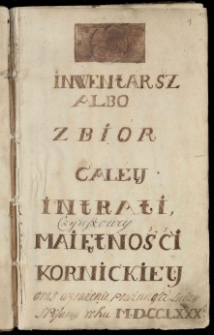 INWENTARSZ
ALBO
ZBIOR
CAŁEY
INTRATI,
Czynszowey
MAIĘTNOŚCI
KORNICKIEY
oraz wyrażenie powinności
roku MDCCLXXX